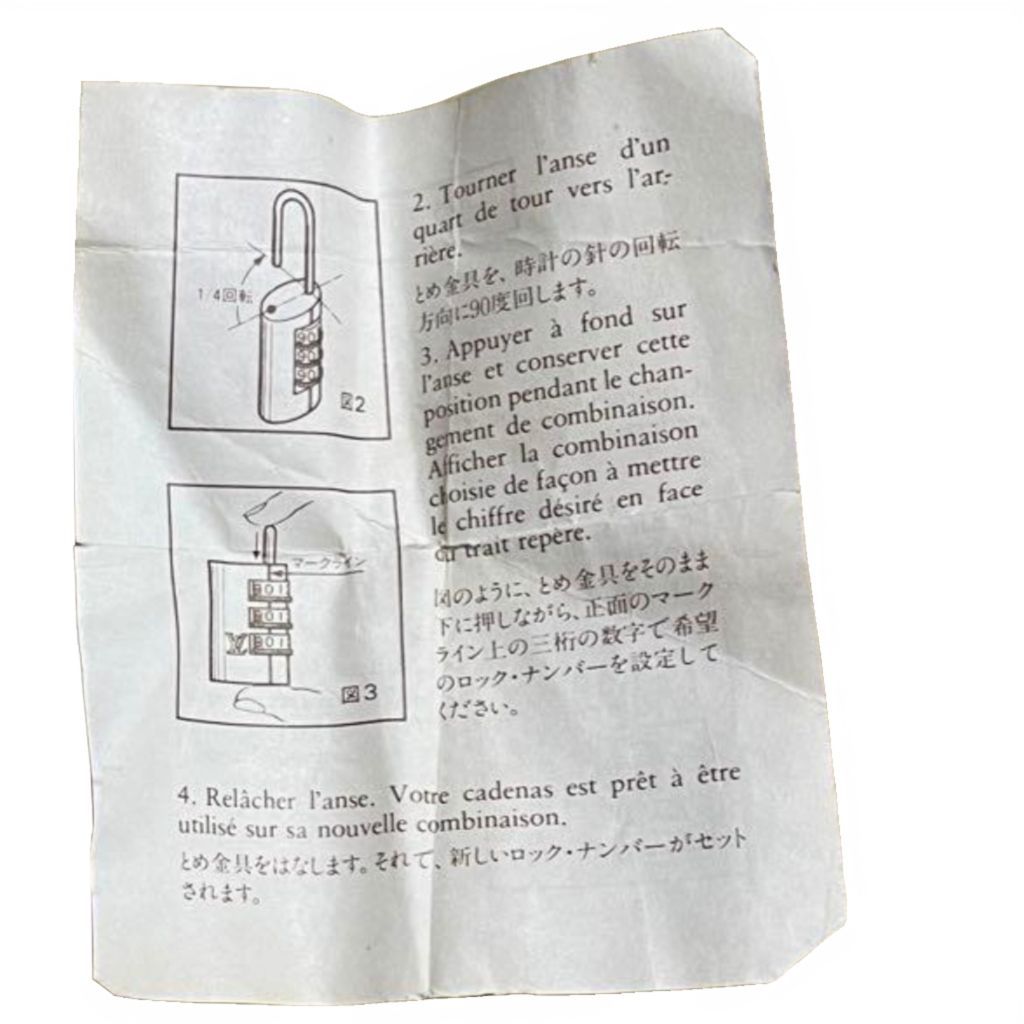 1/4回転
90
90
90
図2
2. Tourner l'anse d'un
quart de tour vers l'ar-
rière.
とめ金具を、時計の針の回転
方向に90度回します。
3. Appuyer à fond sur
l'anse et conserver cette
position pendant le chan-
gement de combinaison.
Afficher la combinaison
choisie de façon à mettre
le chiffre désiré en face
du trait repère.
マークライン
901
801
801
図3
図のように、とめ金具をそのまま
下に押しながら、正面のマーク
ライン上の三桁の数字で希望
のロック・ナンバーを設定して
ください。
4. Relâcher l'anse. Votre cadenas est prêt à être
utilisé sur sa nouvelle combinaison.
とめ金具をはなします。それで、新しいロック・ナンバーがセット
されます。